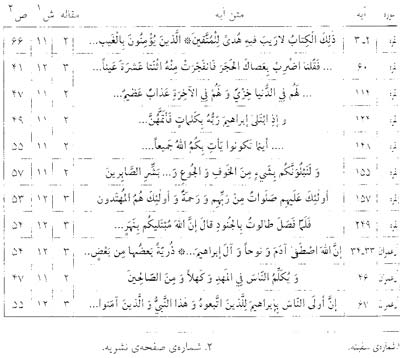 سوره آیه متن آیه مقاله ش۱ ص۲
بقره ۲ـ۳ ذلِكَ الكِتابُ لارَيبَ فيهِ هُدىً لِلمُتَّقينَ* الَّذينَ يُؤمِنُونَ بِالغَيبِ... ۲ ۱۱ ۶۶
بقره ۶۰ ... فَقُلنَا اضْرِبْ بِعَصاكَ الحَجَرَ فَانفَجَرَتْ مِنْهُ اثْنَتا عَشْرَةَ عَيناً... ۳ ۱۲ ۴۱
بقره ۱۱۴ ... لَهُم فِي الدُّنيا خِزْيٌ وَ لَهُمْ فِي الآخِرَةِ عَذابٌ عَظيمٌ... ۲ ۱۱ ۴۷
بقره وَ إذِ ابْتَلىٰ إبراهيمَ رَبُّهُ بِكَلِماتٍ فَأتَمَّهُنَّ... ۲ ۱۱ ۴۹
بقره ۱۴۸ .... أينَما تَكونوا يَأتِ بِكُمُ اللهُ جَميعاً.... ۲ ۱۱ ۵۵
بقره ۱۵۵ وَ لَنَبْلُوَنَّكُم بِشَيءٍ مِنَ الخَوفِ وَ الجُوعِ وَ... بَشِّرِ الصّابِرينَ ۲ ۱۱ ۵۷
بقره ۱۵۷ أولئِكَ عَلَيهِم صَلَواتٌ مِن رَبِّهِم وَ رَحمَةٌ وَ أولئِكَ هُمُ المُهتَدون ۳ ۱۲ ۵۳
بقره ۲۴۹ فَلَمّا فَصَلَ طالوتُ بِالجُنودِ قالَ إنَّ اللهَ مُبْتَليكُم بِنَهَرٍ... ۳ ۱۲ ۵۴
عمران ۳۳ـ۳۴ إنَّ اللهَ اصْطَفىٰ آدَمَ وَ نوحاً وَ آلَ إبراهيمَ...* ذُرِّيَّةً بَعضُها مِن بَعضٍ... ۳ ۱۲ ۵۲
عمران ۴۶ وَ يُكَلِّمُ النّاسَ فِي المَهدِ وَ كَهلاً وَ مِنَ الصّالِحينَ ۲ ۱۱ ۴۷
عمران ۶۷ إنَّ أولَى النّاسِ بِإبراهيمَ لِلَّذينَ اتَّبَعوهُ وَ هٰذَا النَّبِيُّ وَ الَّذينَ آمَنوا... ۳ ۱۲ ۵۵
۱. شماره‌ی سفینه. ۲. شماره‌ی صفحه‌ی نشریه.